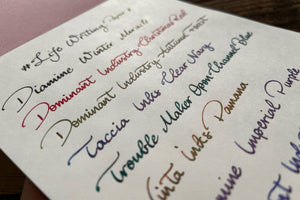 # Life Writing Paper
Diamine Winter Miracle
Dominant Industry Christmas Red
Dominant Industry Autumn
Taccia Inks Clear Navy
Trouble Maker Open-Channel Blue
Vinta Inks Pamana
Diamine Imperial Purple